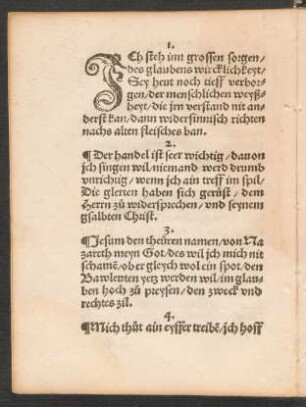 1.
ICh steh inn grossen sorgen/
des glaubens wircklichkeyt/
Sey heut noch tieff verbor-
gen/der menschlichen weyß-
heyt/die jrn verstand nit an-
derst kan/dann widersinnisch richten
nachs alten fleisches ban.
2.
¶Der handel ist seer wichtig/dauon
jch singen wil/niemand werd drumb
vnrichtig/wenn jch ain treff im spil/
Die glerten haben sich gerüst/dem
Herrn zů widersprechen/vnd seynem
gsalbten Christ.
3.
¶Jesum den theüren namen/von Na
zareth meyn Got/des wil jch mich nit
schamẽ/ob er gleych wol ein spot/den
Bawlewten yetz werden wil/im glau-
ben hoch zů preysen/den zweck vnd
rechtes zil.
4.
¶Mich thůt ain eyffer treibẽ/jch hoff